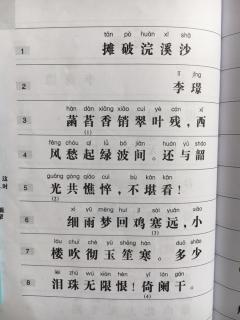 tān pò huàn xī shā
1 摊破浣溪沙
lǐ jǐng
2 李璟
hàn dàn xiāng xiāo cuì yè cán xī
3 菡萏香销翠叶残，西
(1)
fēng chóu qǐ lǜ bō jiān huán yǔ sháo
4 风愁起绿波间。还与韶
guāng gòng qiáo cuì bù kān kàn
5 光共憔悴，不堪看！
(2)
xì yǔ mèng huí jī sài yuǎn xiǎo
6 细雨梦回鸡塞远，小
(3)
lóu chuī chè yù shēng hán duō shǎo
7 楼吹彻玉笙寒。多少
lèi zhū wú xiàn hèn yǐ lán gān
8 泪珠无限恨！倚阑干。
(4)